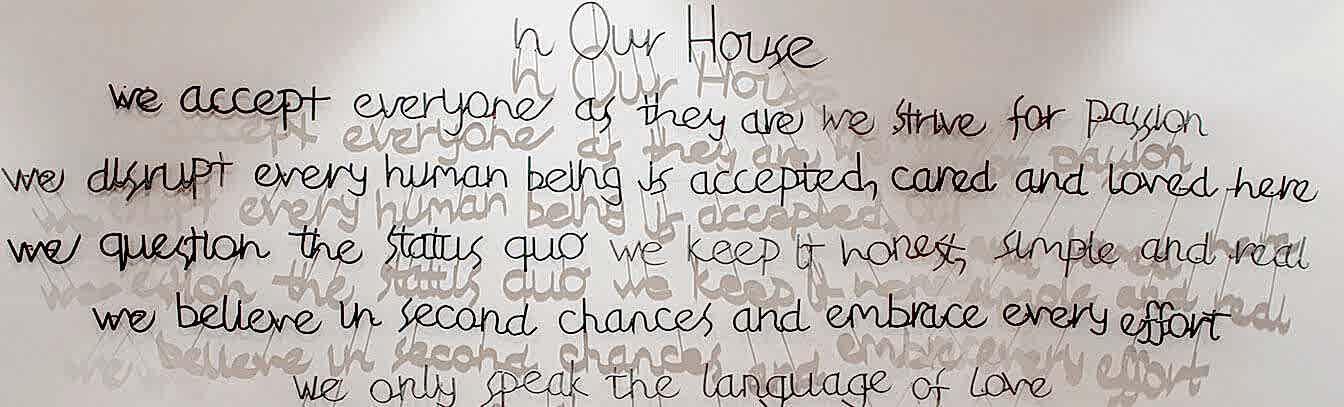 n Our House
we accept everyone as they are we strive for passion
we disrupt every human being is accepted, cared and loved here
we question the status quo we keep it honest, simple and real
we believe in second chances and embrace every effort
we only speak the language of love